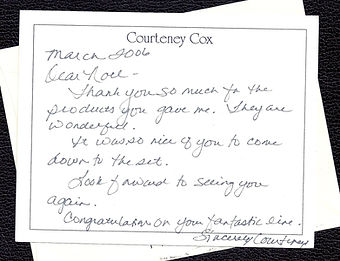 Courteney Cox
March 2006
Dear Noel -
Thank you so much for the
products you gave me. They are
wonderful.
It was so nice of you to come
down to the set.
Look forward to seeing you
again.
Congratulations on your fantastic line.
Sincerely Courteney